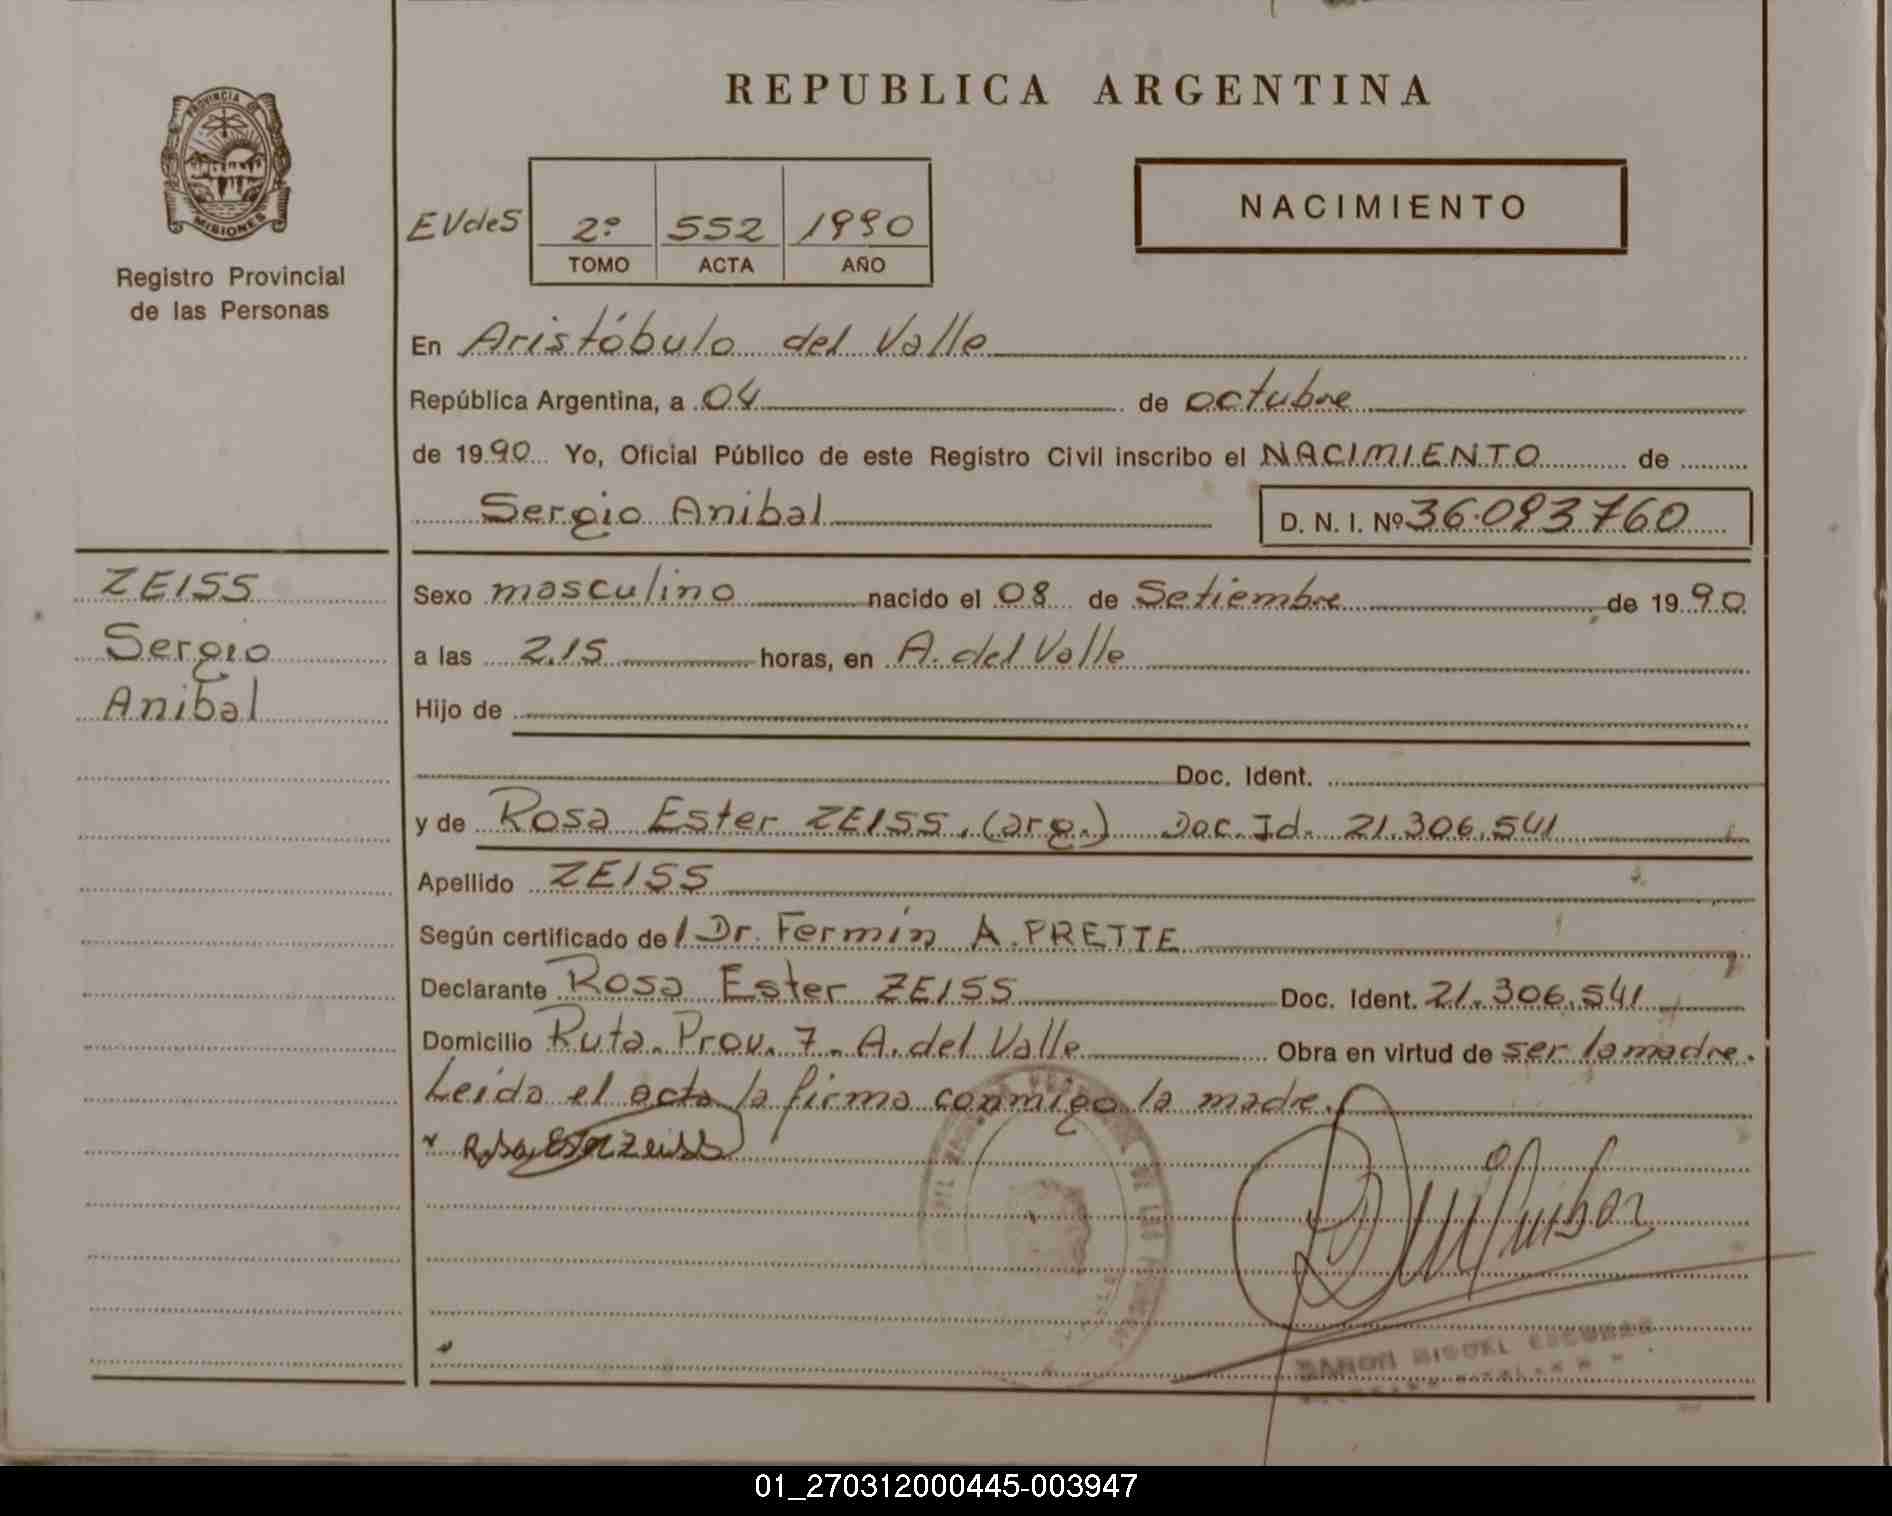 REPUBLICA ARGENTINA
PROVINCIA DE
MISIONES
Registro Provincial
de las Personas
NACIMIENTO
EVdeS 2º 552 1990
TOMO ACTA AÑO
En Aristóbulo del Valle
República Argentina, a 04 de octubre
de 1990 Yo, Oficial Público de este Registro Civil inscribo el NACIMIENTO de
Sergio Anibal D. N. I. Nº 36.093760
ZEISS
Sergio
Anibal
Sexo masculino nacido el 08 de Setiembre de 1990
a las 2.15 horas, en A. del Valle
Hijo de
Doc. Ident.
y de Rosa Ester ZEISS. (arg.) Doc. Id. 21.306.541
Apellido ZEISS
Según certificado de / Dr. Fermín A. PRETTE
Declarante Rosa Ester ZEISS Doc. Ident. 21.306.541
Domicilio Ruta. Prov. 7 - A. del Valle Obra en virtud de ser la madre.
Leida el acta la firma conmigo la madre.
Rosa Ester Zeiss
RAMON MIGUEL ESCOBAR
01_270312000445-003947